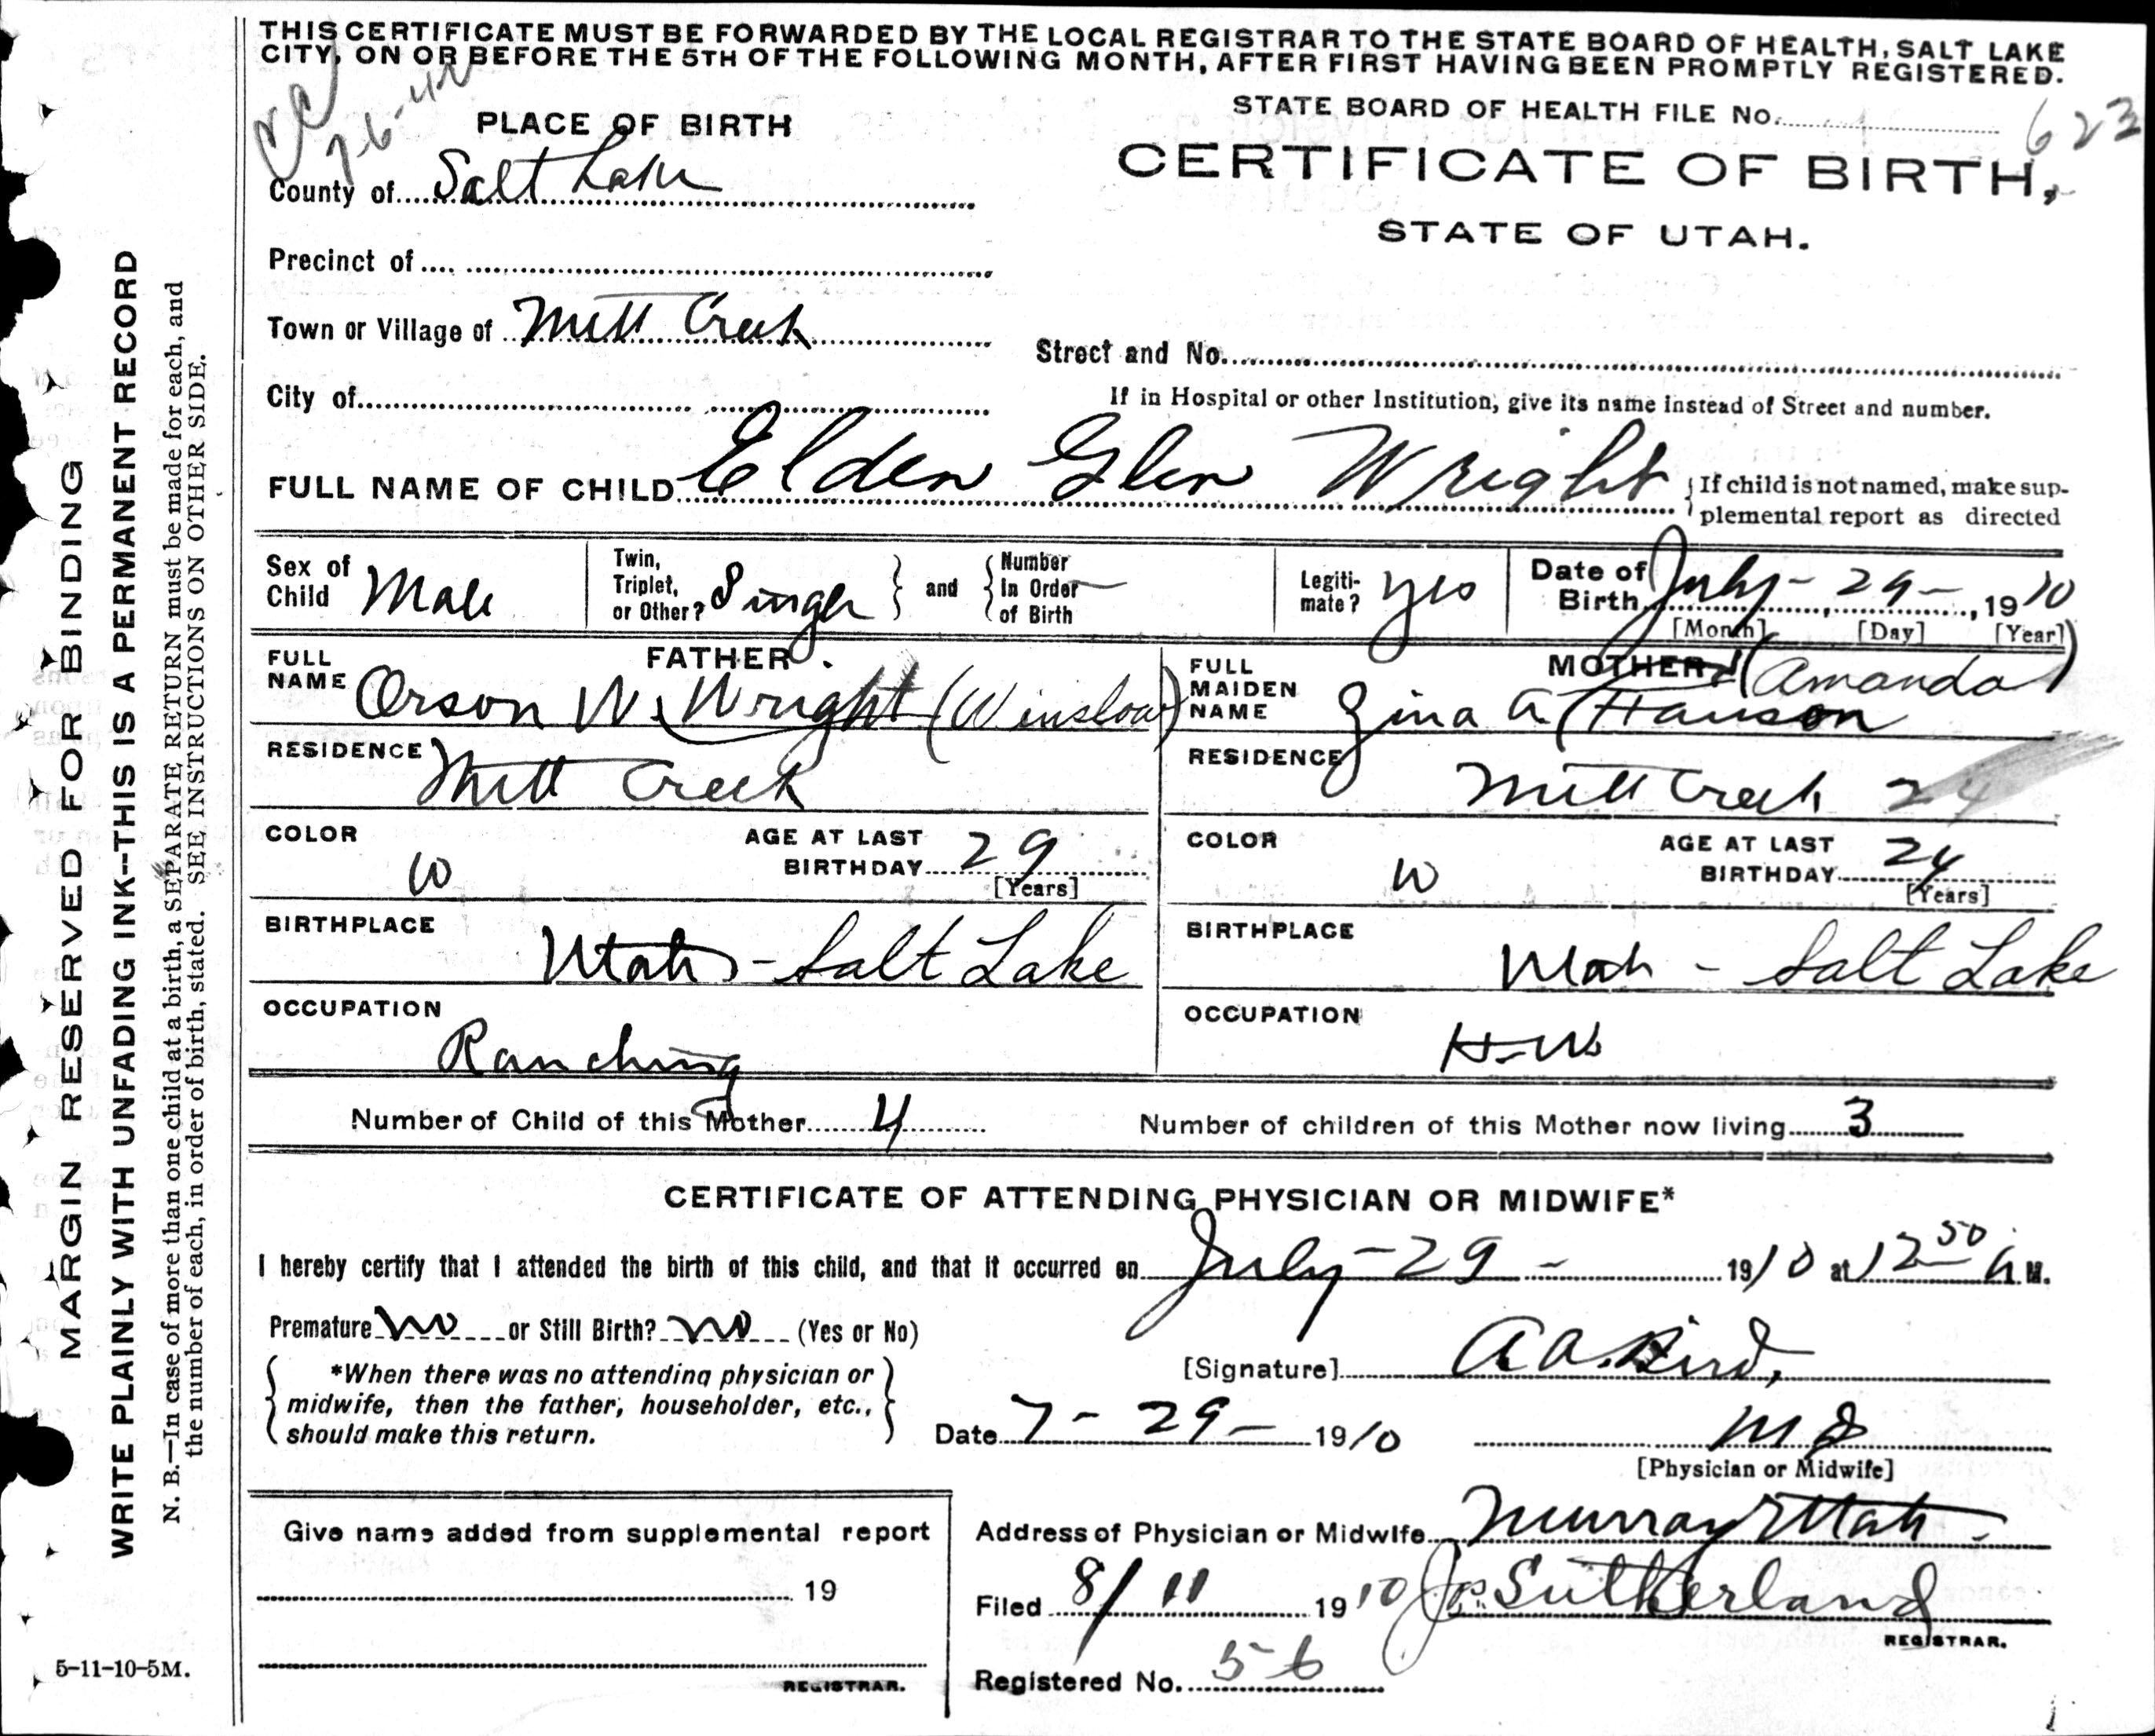 THIS CERTIFICATE MUST BE FORWARDED BY THE LOCAL REGISTRAR TO THE STATE BOARD OF HEALTH, SALT LAKE
CITY, ON OR BEFORE THE 5TH OF THE FOLLOWING MONTH, AFTER FIRST HAVING BEEN PROMPTLY REGISTERED.
7-6-42
STATE BOARD OF HEALTH FILE No. 623
PLACE OF BIRTH
CERTIFICATE OF BIRTH,
STATE OF UTAH.
County of Salt Lake
Precinct of
Town or Village of Mill Creek
Street and No.
City of
If in Hospital or other Institution, give its name instead of Street and number.
FULL NAME OF CHILD Elden Glen Wright
If child is not named, make sup-
plemental report as directed
Sex of Child Male
Twin, Triplet, or Other? Single
and Number In Order of Birth —
Legiti-mate? yes
Date of Birth July - 29 - , 1910
[Month] [Day] [Year]
FATHER.
FULL NAME Orson W. Wright (Winslow)
RESIDENCE Mill Creek
COLOR W
AGE AT LAST BIRTHDAY 29
[Years]
BIRTHPLACE Utah - Salt Lake
OCCUPATION Ranching
MOTHER (Amanda)
FULL MAIDEN NAME Zina A. Hanson
RESIDENCE Mill Creek 24
COLOR W
AGE AT LAST BIRTHDAY 24
[Years]
BIRTHPLACE Utah - Salt Lake
OCCUPATION H-W
Number of Child of this Mother 4
Number of children of this Mother now living 3
CERTIFICATE OF ATTENDING PHYSICIAN OR MIDWIFE*
I hereby certify that I attended the birth of this child, and that it occurred on July - 29 - 1910 at 12 50 A M.
Premature no or Still Birth? no (Yes or No)
*When there was no attending physician or
midwife, then the father, householder, etc.,
should make this return.
[Signature] A A. Bird,
Date 7 - 29 - 1910
M D
[Physician or Midwife]
Give name added from supplemental report
19
REGISTRAR.
Address of Physician or Midwife Murray Utah
Filed 8/11 1910 Jos. Sutherland
REGISTRAR.
Registered No. 56
5-11-10-5M.
MARGIN RESERVED FOR BINDING
WRITE PLAINLY WITH UNFADING INK--THIS IS A PERMANENT RECORD
N. B.—In case of more than one child at a birth, a SEPARATE RETURN must be made for each, and
the number of each, in order of birth, stated. SEE INSTRUCTIONS ON OTHER SIDE.